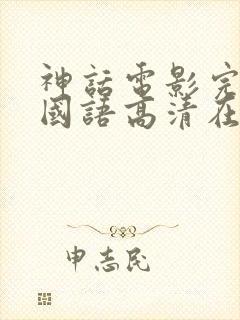 神話電影完
國語高清在
申志民